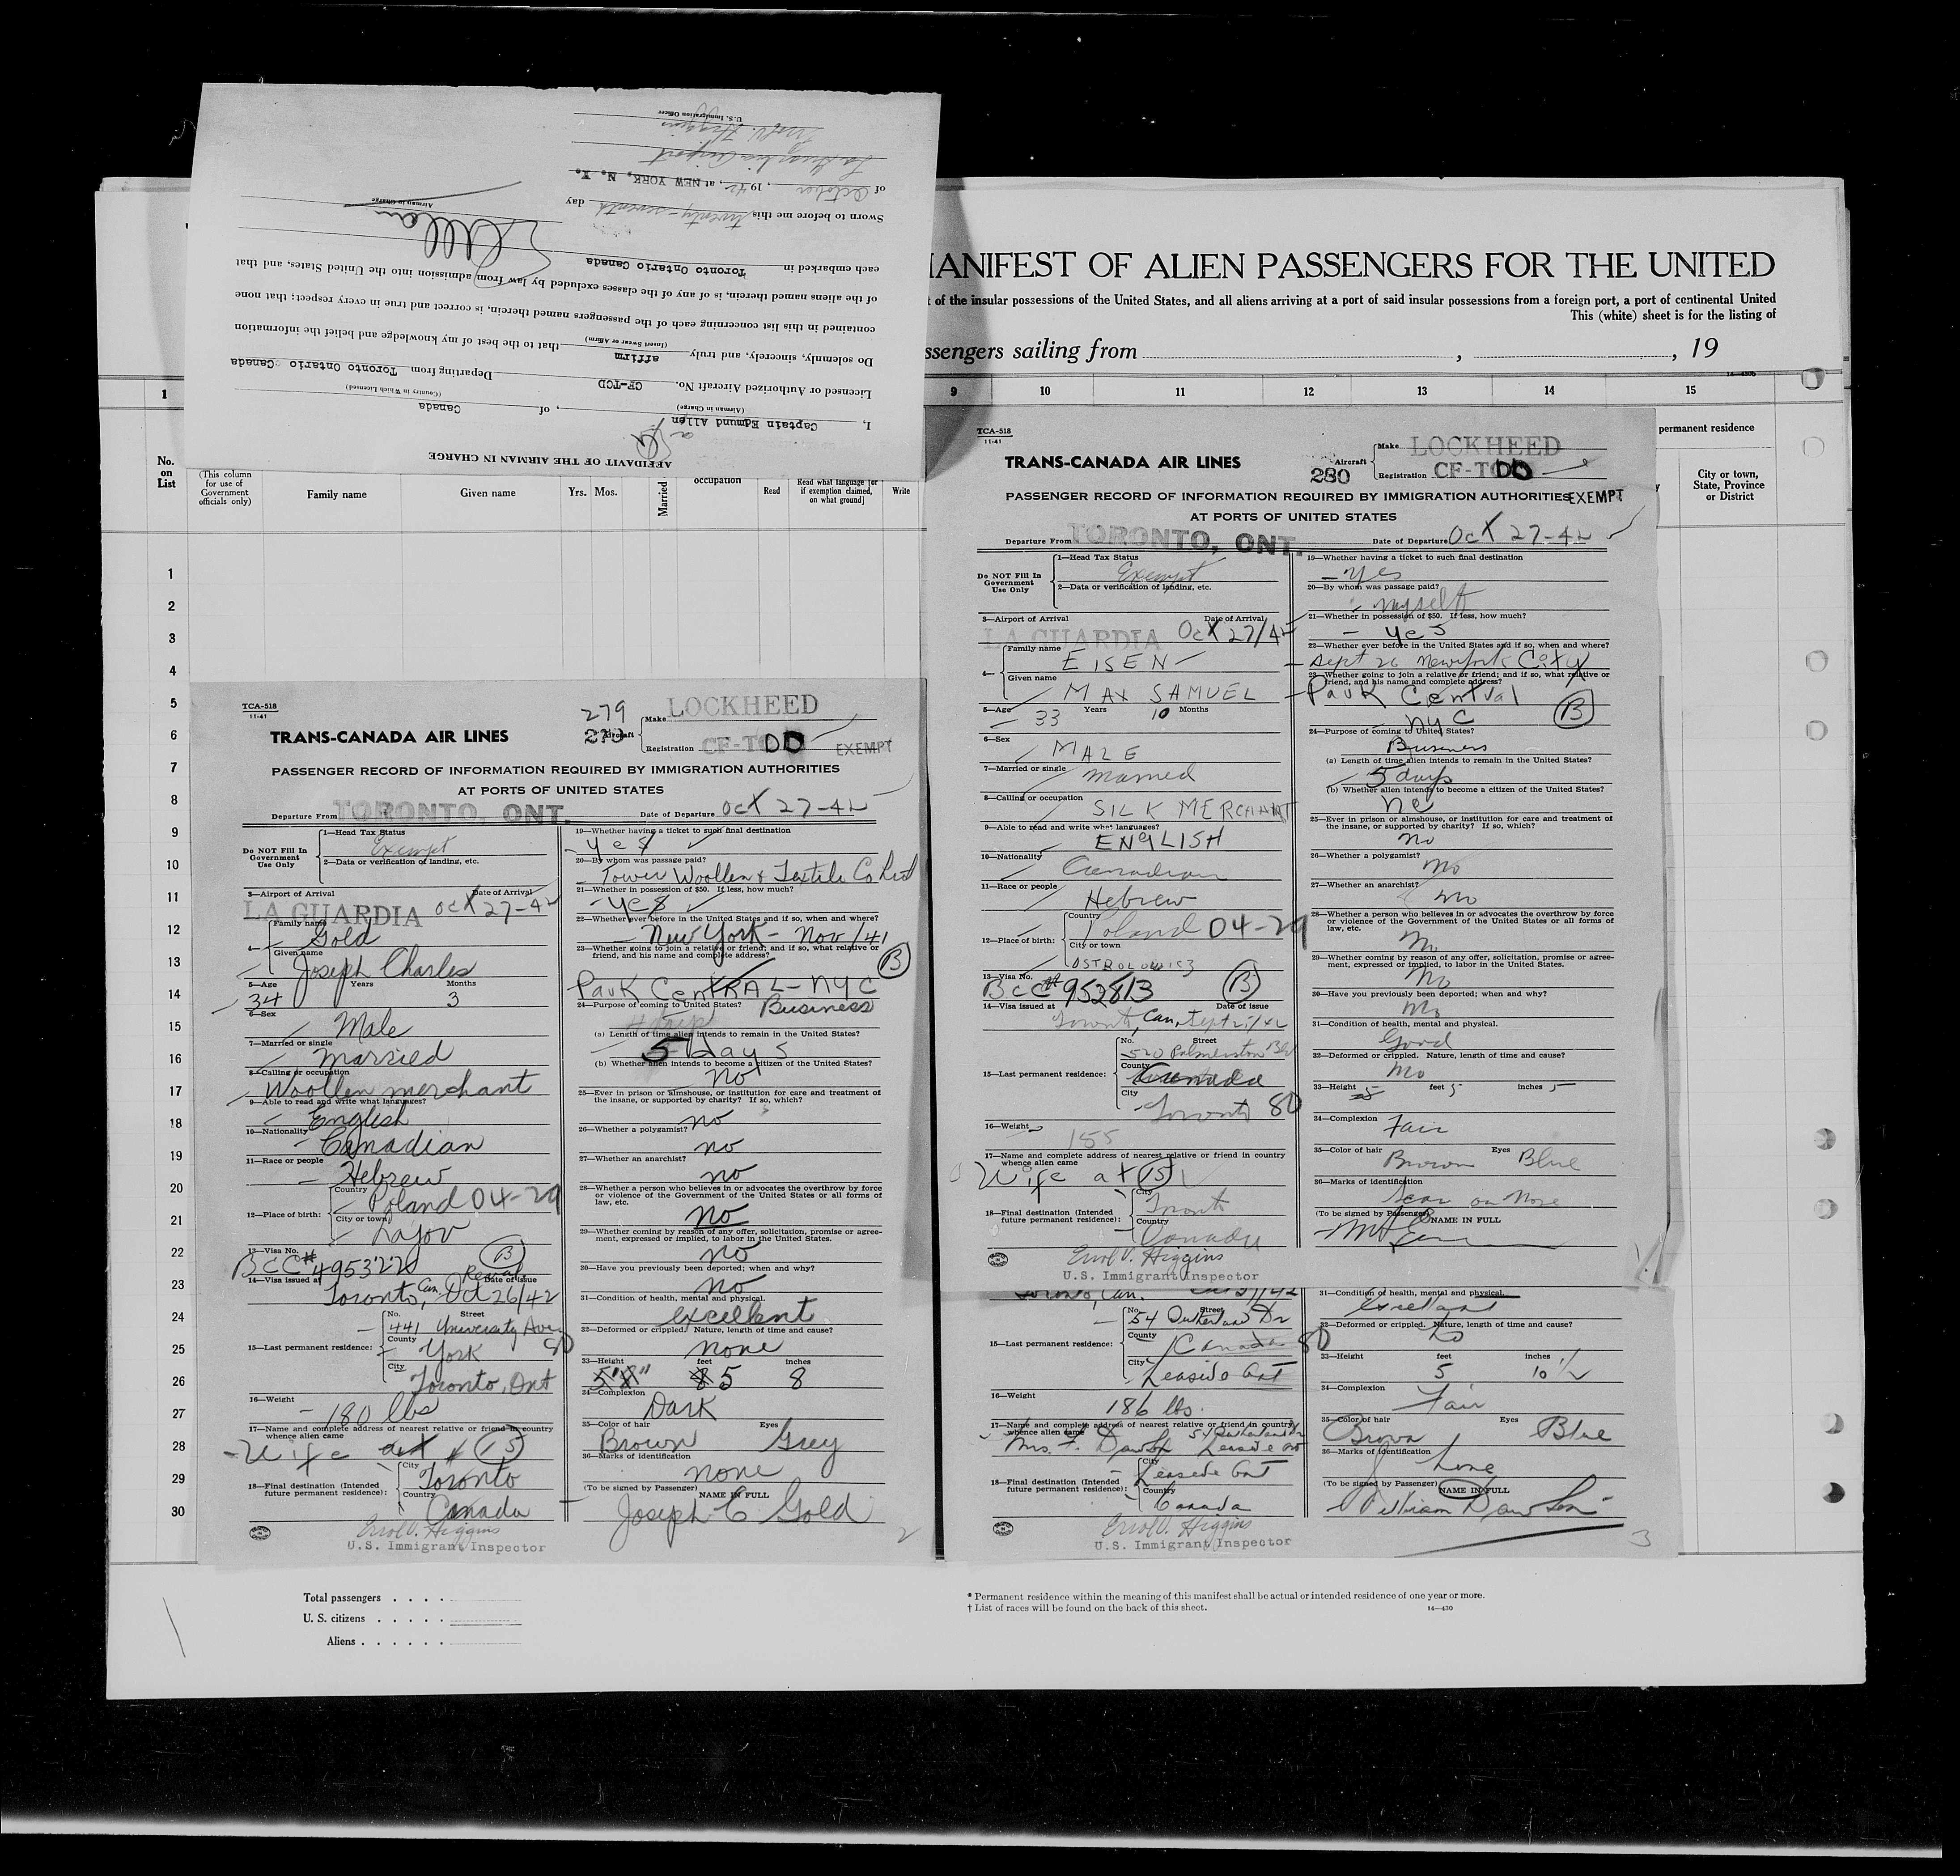 AFFIDAVIT OF THE AIRMAN IN CHARGE
I, Captain Edmund Allen, of Canada
(Airman in Charge) (Country in Which Licensed)
Licensed or Authorized Aircraft No. CF-TCD Departing from Toronto Ontario Canada
Do solemnly, sincerely, and truly affirm that to the best of my knowledge and belief the information
(Insert Swear or Affirm)
contained in this list concerning each of the passengers named therein, is correct and true in every respect; that none
of the aliens named therein, is of any of the classes excluded by law from admission into the United States, and that
each embarked in Toronto Ontario Canada
Airman in Charge
Sworn to before me this twenty-seventh day
of October, 1942, at NEW YORK, N. Y.
La Guardia Airport
Errol V. Higgins
U.S. Immigration Officer
MANIFEST OF ALIEN PASSENGERS FOR THE UNITED
t of the insular possessions of the United States, and all aliens arriving at a port of said insular possessions from a foreign port, a port of continental United
This (white) sheet is for the listing of
ssengers sailing from , , 19
1 9 10 11 12 13 14 15
No. on List
(This column for use of Government officials only)
Family name
Given name
Yrs. Mos.
Married
occupation
Read
Read what language [or if exemption claimed, on what ground]
Write
permanent residence
City or town, State, Province or District
1
2
3
4
5
6
7
8
9
10
11
12
13
14
15
16
17
18
19
20
21
22
23
24
25
26
27
28
29
30
TCA-518
11-41
279
TRANS-CANADA AIR LINES
Aircraft
Make LOCKHEED
Registration CF-TCD D
EXEMPT
PASSENGER RECORD OF INFORMATION REQUIRED BY IMMIGRATION AUTHORITIES
AT PORTS OF UNITED STATES
Departure From TORONTO, ONT. Date of Departure Oct 27-42
Do NOT Fill In Government Use Only
1—Head Tax Status
Exempt
2—Data or verification of landing, etc.
3—Airport of Arrival Date of Arrival
LA GUARDIA Oct 27-42
4— Family name
Gold
Given name
Joseph Charles
5—Age Years Months
34 3
6—Sex
Male
7—Married or single
Married
8—Calling or occupation
Woollen merchant
9—Able to read and write what languages?
English
10—Nationality
Canadian
11—Race or people
Hebrew
12—Place of birth: Country
Poland 04-29
City or town
Lagov
13—Visa No.
BCC# 495322 B
14—Visa issued at Date of issue
Toronto, Can. Oct 26/42
15—Last permanent residence: No. Street
441 University Ave
County
York 80
City
Toronto, Ont
16—Weight
180 lbs
17—Name and complete address of nearest relative or friend in country whence alien came
Wife at # 15
18—Final destination (Intended future permanent residence): City
Toronto
Country
Canada
Errol V. Higgins
U.S. Immigrant Inspector
19—Whether having a ticket to such final destination
yes
20—By whom was passage paid?
Tower Woollen & Textile Co Ltd
21—Whether in possession of $50. If less, how much?
yes
22—Whether ever before in the United States and if so, when and where?
New York - Nov/41
23—Whether going to join a relative or friend; and if so, what relative or friend, and his name and complete address?
B
Park CENTRAL - NYC
24—Purpose of coming to United States? Business
(a) Length of time alien intends to remain in the United States?
5 days
(b) Whether alien intends to become a citizen of the United States?
no
25—Ever in prison or almshouse, or institution for care and treatment of the insane, or supported by charity? If so, which?
no
26—Whether a polygamist?
no
27—Whether an anarchist?
no
28—Whether a person who believes in or advocates the overthrow by force or violence of the Government of the United States or all forms of law, etc.
no
29—Whether coming by reason of any offer, solicitation, promise or agreement, expressed or implied, to labor in the United States.
no
30—Have you previously been deported; when and why?
no
31—Condition of health, mental and physical.
excellent
32—Deformed or crippled. Nature, length of time and cause?
none
33—Height feet inches
5 8
34—Complexion
Dark
35—Color of hair Eyes
Brown Grey
36—Marks of identification
none
(To be signed by Passenger) NAME IN FULL
Joseph C Gold
2
TCA-518
11-41
280
TRANS-CANADA AIR LINES
Aircraft
Make LOCKHEED
Registration CF-TCD D
PASSENGER RECORD OF INFORMATION REQUIRED BY IMMIGRATION AUTHORITIES EXEMPT
AT PORTS OF UNITED STATES
Departure From TORONTO, ONT. Date of Departure Oct 27-42
Do NOT Fill In Government Use Only
1—Head Tax Status
Exempt
2—Data or verification of landing, etc.
3—Airport of Arrival Date of Arrival
LA GUARDIA Oct 27/42
4— Family name
EISEN
Given name
MAX SAMUEL
5—Age Years Months
33 10
6—Sex
MALE
7—Married or single
Married
8—Calling or occupation
SILK MERCHANT
9—Able to read and write what languages?
ENGLISH
10—Nationality
Canadian
11—Race or people
Hebrew
12—Place of birth: Country
Poland 04-29
City or town
13—Visa No.
BCC# 952813 B
14—Visa issued at Date of issue
Toronto, Can, Sept 25/42
15—Last permanent residence: No. Street
520 Palmerston Blv
County
Canada
City
Toronto 80
16—Weight
155
17—Name and complete address of nearest relative or friend in country whence alien came
Wife at 15
18—Final destination (Intended future permanent residence): City
Toronto
Country
Canada
Errol V. Higgins
U.S. Immigrant Inspector
19—Whether having a ticket to such final destination
yes
20—By whom was passage paid?
myself
21—Whether in possession of $50. If less, how much?
yes
22—Whether ever before in the United States and if so, when and where?
Sept 26 New York City
23—Whether going to join a relative or friend; and if so, what relative or friend, and his name and complete address?
Park Central
NYC B
24—Purpose of coming to United States?
Business
(a) Length of time alien intends to remain in the United States?
5 days
(b) Whether alien intends to become a citizen of the United States?
no
25—Ever in prison or almshouse, or institution for care and treatment of the insane, or supported by charity? If so, which?
no
26—Whether a polygamist?
No
27—Whether an anarchist?
No
28—Whether a person who believes in or advocates the overthrow by force or violence of the Government of the United States or all forms of law, etc.
No
29—Whether coming by reason of any offer, solicitation, promise or agreement, expressed or implied, to labor in the United States.
No
30—Have you previously been deported; when and why?
No
31—Condition of health, mental and physical.
Good
32—Deformed or crippled. Nature, length of time and cause?
No
33—Height feet 5 inches 5
34—Complexion
Fair
35—Color of hair Eyes
Brown Blue
36—Marks of identification
Scar on Nose
(To be signed by Passenger) NAME IN FULL
Toronto, Can.
15—Last permanent residence: No. Street
54 Sutherland Dr
County
Canada 80
City
Leaside Ont
16—Weight
186 lbs.
17—Name and complete address of nearest relative or friend in country whence alien came
Mrs. F. Dawson 54 Sutherland Dr Leaside Ont
18—Final destination (Intended future permanent residence): City
Leaside Ont
Country
Canada
Errol V. Higgins
U.S. Immigrant Inspector
31—Condition of health, mental and physical.
Excellent
32—Deformed or crippled. Nature, length of time and cause?
No
33—Height feet inches
5 10 1/2
34—Complexion
Fair
35—Color of hair Eyes
Brown Blue
36—Marks of identification
None
(To be signed by Passenger) NAME IN FULL
William Dawson
3
Total passengers . . . .
U. S. citizens . . . . .
Aliens . . . . . .
* Permanent residence within the meaning of this manifest shall be actual or intended residence of one year or more.
† List of races will be found on the back of this sheet.
14—430